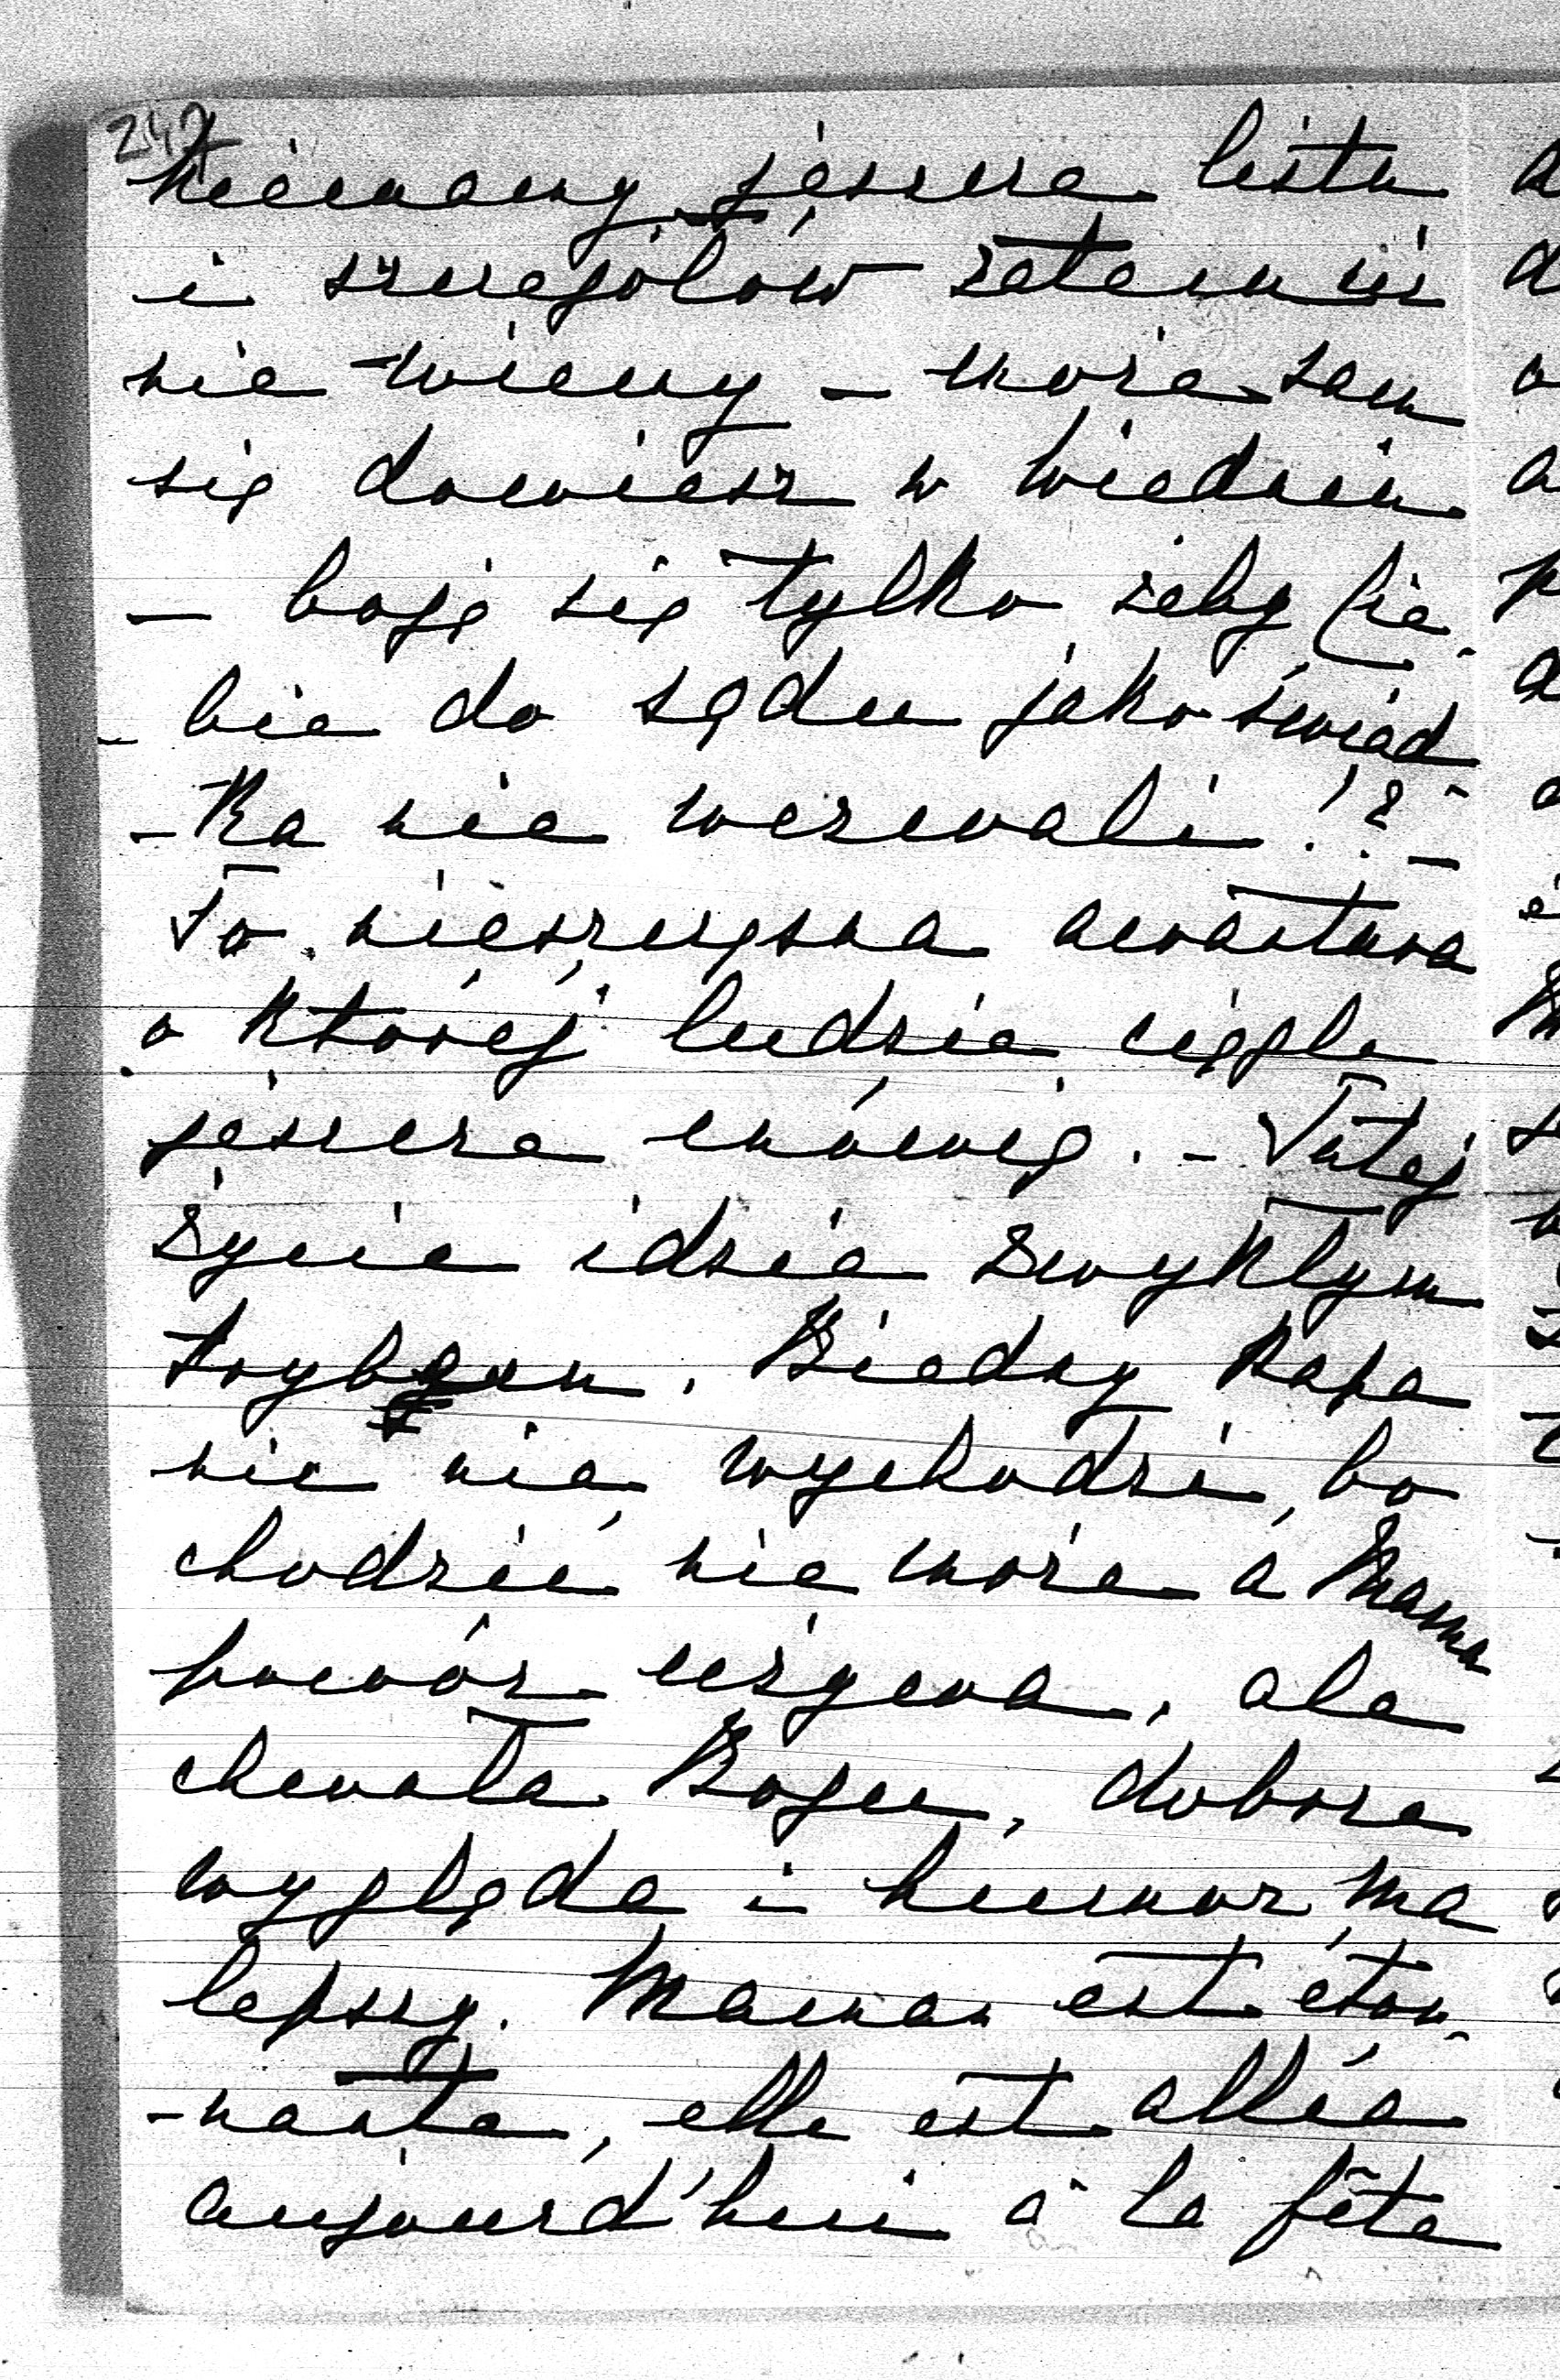 247
nie mamy jeszcze listu
i szczegółów zatem nic
nie wiemy – może sam
się dowiesz w Wiedniu
– boję się tylko żeby Cie-
-bie do sądu jako świad-
-ka nie wezwali!? –
To nieszczęsna awantura
o której ludzie ciągle
jeszcze mówią. – Tutej
życie idzie zwykłym
trybem. Biedny Papa
nic nie wychodzi, bo
chodzić nie może a Mama
powóz używa, ale
chwała Bogu, dobrze
wygląda i humor ma
lepszy. Maman est éton-
-nante, elle est allée
aujourd'hui à la fête